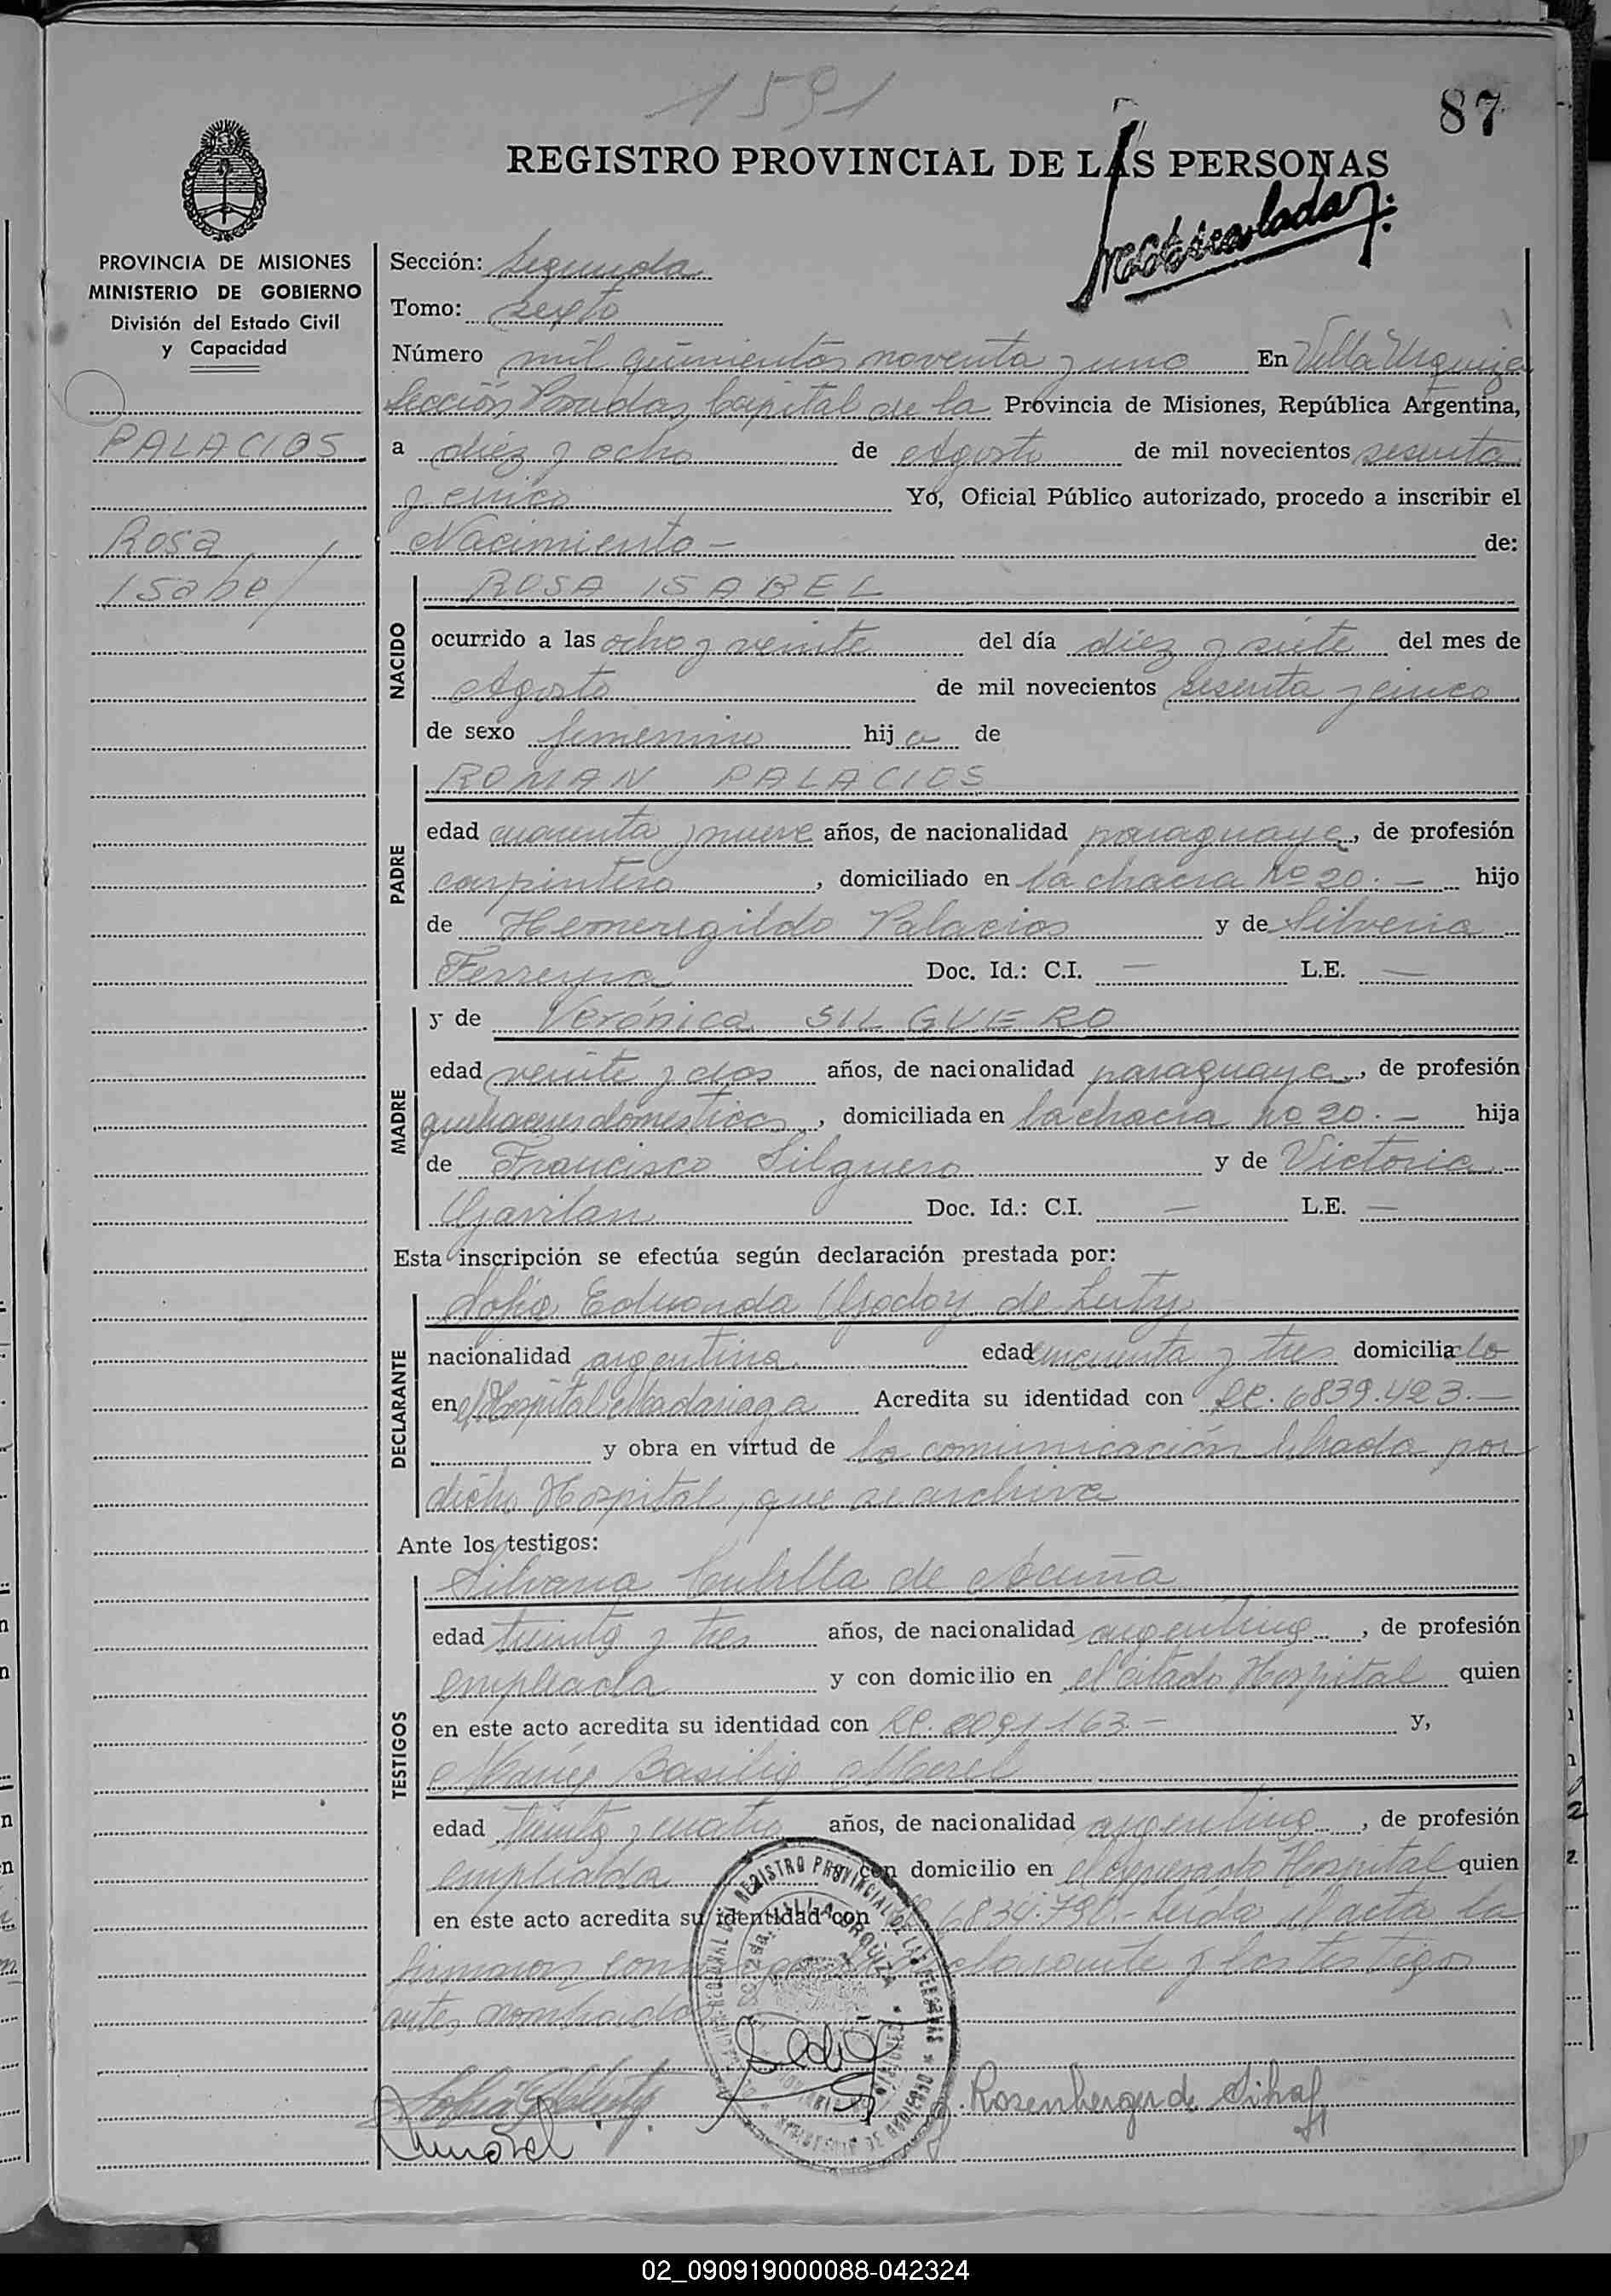 1591
87
REGISTRO PROVINCIAL DE LAS PERSONAS
Matriculada
PROVINCIA DE MISIONES
MINISTERIO DE GOBIERNO
División del Estado Civil
y Capacidad
PALACIOS
Rosa
Isabel
Sección: Segunda
Tomo: sexto
Número mil quinientos noventa y uno En Villa Urquiza
Sección Posadas Capital de la Provincia de Misiones, República Argentina,
a diez y ocho de Agosto de mil novecientos sesenta
y cinco Yo, Oficial Público autorizado, procedo a inscribir el
Nacimiento - de:
NACIDO
ROSA ISABEL
ocurrido a las ocho y veinte del día diez y siete del mes de
Agosto de mil novecientos sesenta y cinco
de sexo femenino hija de
PADRE
ROMAN PALACIOS
edad cuarenta y nueve años, de nacionalidad paraguaya, de profesión
carpintero, domiciliado en la chacra No 20. - hijo
de Hemeregildo Palacios y de Silveria
Ferreyra Doc. Id.: C.I. — L.E. —
MADRE
y de Verónica SILGUERO
edad veinte y dos años, de nacionalidad paraguaya, de profesión
quehaceres domesticos, domiciliada en la chacra No 20. - hija
de Francisco Silguero y de Victoria
Gavilan Doc. Id.: C.I. — L.E. —
Esta inscripción se efectúa según declaración prestada por:
DECLARANTE
Sofia Eduarda Godoy de Luty
nacionalidad argentina edad cincuenta y tres domiciliado
en el Hospital Madariaga Acredita su identidad con LC. 6839.423. —
y obra en virtud de la comunicación librada por
dicho Hospital, que se archiva
Ante los testigos:
TESTIGOS
Silvana de Acuña
edad treinta y tres años, de nacionalidad argentina, de profesión
empleada y con domicilio en el citado Hospital quien
en este acto acredita su identidad con LC. 2091163. - y,
Basilia Morel
edad treinta y cuatro años, de nacionalidad argentina, de profesión
empleada con domicilio en el expresado Hospital quien
en este acto acredita su identidad con 6834.790. - Leída el acta la
firmaron y los testigos
antes nombrados
REGISTRO PROVINCIAL DE LAS PERSONAS
VILLA URQUIZA
MINISTERIO DE GOBIERNO
Rosenberger de
Morel
02_090919000088-042324